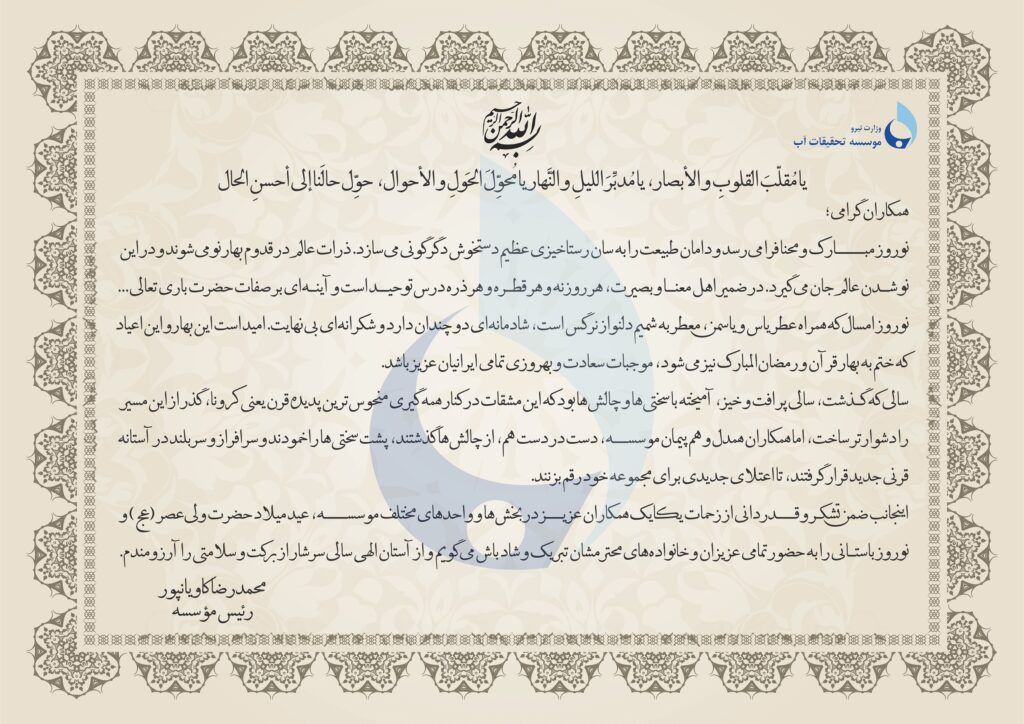 بسم الله الرحمن الرحیم
وزارت نیرو
موسسه تحقیقات آب
یا مُقلّبَ القلوبِ و الأبصار، یا مُدبِّرَ اللیلِ و النَّهار یا مُحوِّلَ الحَولِ و الأحوال، حوِّل حالَنا إلی أحسنِ الحال
همکاران گرامی؛
نوروز مبارک و محنا فرا می رسد و دامان طبیعت را به سان رستاخیزی عظیم دستخوش دگرگونی می سازد. ذرات عالم در قدوم بهار نو می شوند و در این
نو شدن عالم جان می گیرد. در ضمیر اهل معنا و بصیرت، هر روزنه و هر قطره و هر ذره درس توحید است و آینه ای بر صفات حضرت باری تعالی...
نوروز امسال که همراه عطر یاس و یاسمن، معطر به شمیم دلنواز نرگس است، شادمانه ای دو چندان دارد و شکرانه ای بی نهایت. امید است این بهار و این اعیاد
که ختم به بهار قرآن و رمضان المبارک نیز می شود، موجبات سعادت و بهروزی تمامی ایرانیان عزیز باشد.
سالی که گذشت، سالی پر افت و خیز، آمیخته با سختی ها و چالش ها بود که این مشقات در کنار همه گیری منحوس ترین پدیده قرن یعنی کرونا، گذر از این مسیر
را دشوارتر ساخت، اما همکاران همدل و هم پیمان موسسه، دست در دست هم، از چالش ها گذشتند، پشت سختی ها را خم نمودند و سرافراز و سربلند در آستانه
قرنی جدید قرار گرفتند، تا اعتلای جدیدی برای مجموعه خود رقم بزنند.
اینجانب ضمن تشکر و قدردانی از زحمات یکایک همکاران عزیز در بخش ها و واحدهای مختلف موسسه، عید میلاد حضرت ولی عصر (عج) و
نوروز باستانی را به حضور تمامی عزیزان و خانواده های محترمشان تبریک و شاد باش می گویم و از آستان الهی سالی سرشار از برکت و سلامتی را آرزومندم.
محمدرضا کاویانپور
رئیس مؤسسه